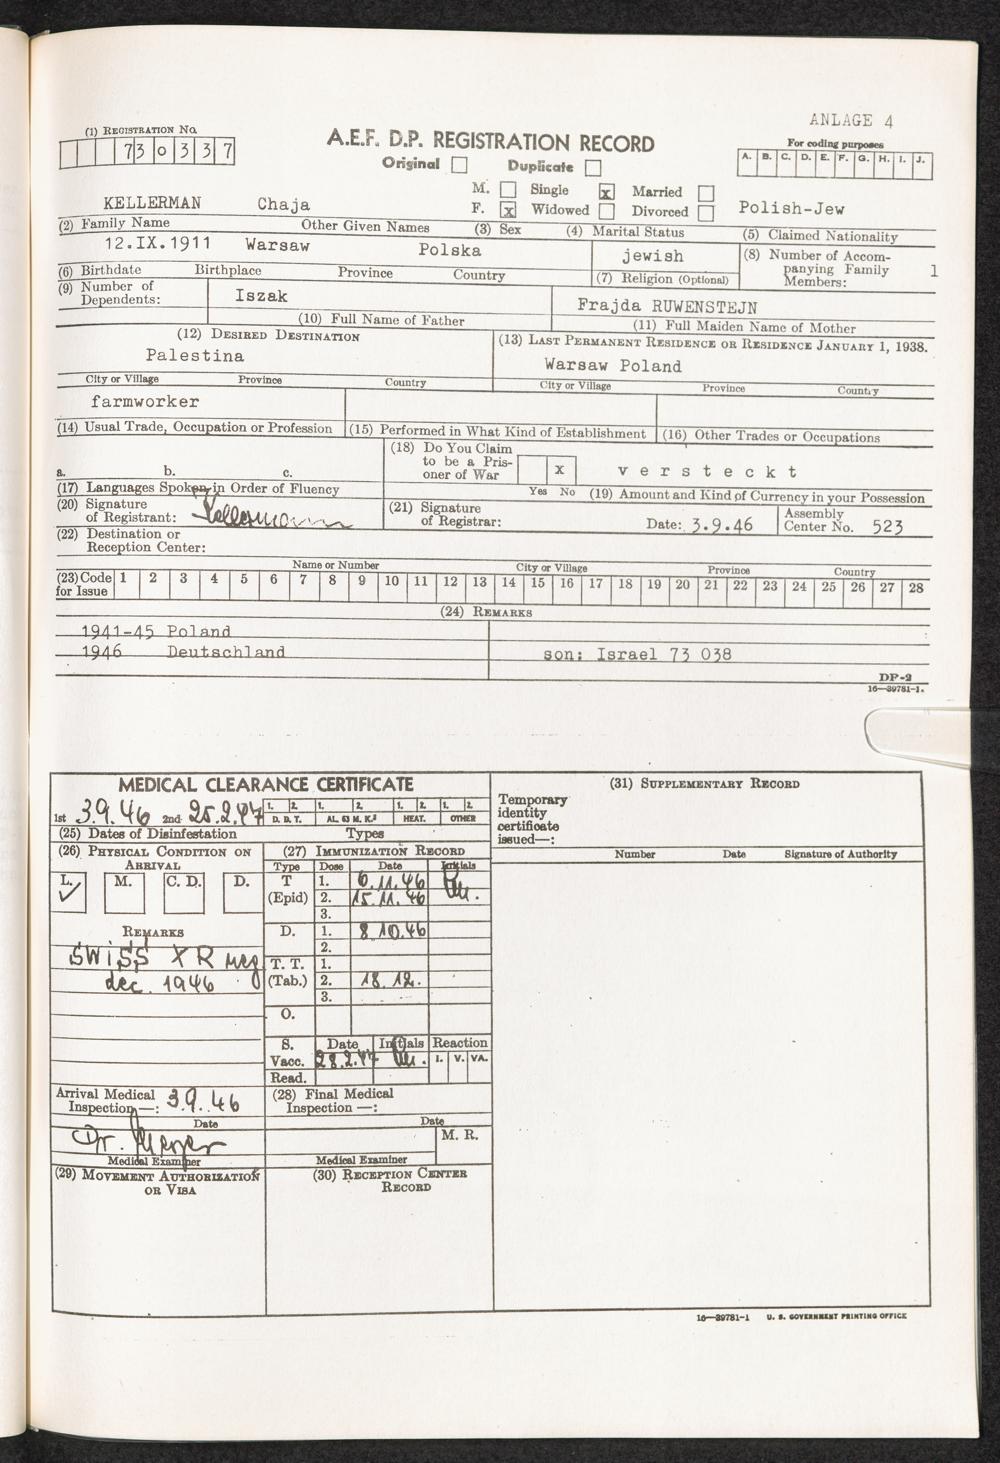 ANLAGE 4
(1) REGISTRATION NO.
7 3 0 3 3 7
A.E.F. D.P. REGISTRATION RECORD
Original Duplicate
For coding purposes
A. B. C. D. E. F. G. H. I. J.
M. Single x Married
KELLERMAN Chaja F. x Widowed Divorced Polish-Jew
(2) Family Name Other Given Names (3) Sex (4) Marital Status (5) Claimed Nationality
12.IX.1911 Warsaw Polska jewish
(8) Number of Accom-
panying Family 1
Members:
(6) Birthdate Birthplace Province Country (7) Religion (Optional)
(9) Number of
Dependents:
Iszak Frajda RUWENSTEJN
(10) Full Name of Father (11) Full Maiden Name of Mother
(12) DESIRED DESTINATION (13) LAST PERMANENT RESIDENCE OR RESIDENCE JANUARY 1, 1938.
Palestina Warsaw Poland
City or Village Province Country City or Village Province Country
farmworker
(14) Usual Trade, Occupation or Profession (15) Performed in What Kind of Establishment (16) Other Trades or Occupations
(18) Do You Claim
to be a Pris-
oner of War
x versteckt
a. b. c.
(17) Languages Spoken in Order of Fluency Yes No (19) Amount and Kind of Currency in your Possession
(20) Signature
of Registrant: Kellermann
(21) Signature
of Registrar: Date: 3.9.46
Assembly
Center No. 523
(22) Destination or
Reception Center:
Name or Number City or Village Province Country
(23) Code
for Issue
1 2 3 4 5 6 7 8 9 10 11 12 13 14 15 16 17 18 19 20 21 22 23 24 25 26 27 28
(24) REMARKS
1941-45 Poland
1946 Deutschland son: Israel 73 038
DP-2
16—39781-1.
MEDICAL CLEARANCE CERTIFICATE
1st 3.9.46 2nd 25.2.47
1. 2. 1. 2. 1. 2. 1. 2.
D. D. T. AL. 63 M. K.² HEAT. OTHER
(25) Dates of Disinfestation Types
(26) PHYSICAL CONDITION ON
ARRIVAL
L. M. C. D. D.
REMARKS
SWISS XR neg
dec. 1946
(27) IMMUNIZATION RECORD
Type Dose Date Initials
T
(Epid)
1. 6.11.46
2. 15.11.46
3.
D. 1. 8.10.46
2.
T. T.
(Tab.)
1.
2. 18.12.
3.
O.
S. Date Initials Reaction
Vacc. 28.2.47 I. V. VA.
Read.
Arrival Medical
Inspection—: 3.9.46
Date
Dr.
Medical Examiner
(28) Final Medical
Inspection —:
Date
M. R.
Medical Examiner
(29) MOVEMENT AUTHORIZATION
OR VISA
(30) RECEPTION CENTER
RECORD
(31) SUPPLEMENTARY RECORD
Temporary
identity
certificate
issued—:
Number Date Signature of Authority
16—39781-1 U. S. GOVERNMENT PRINTING OFFICE